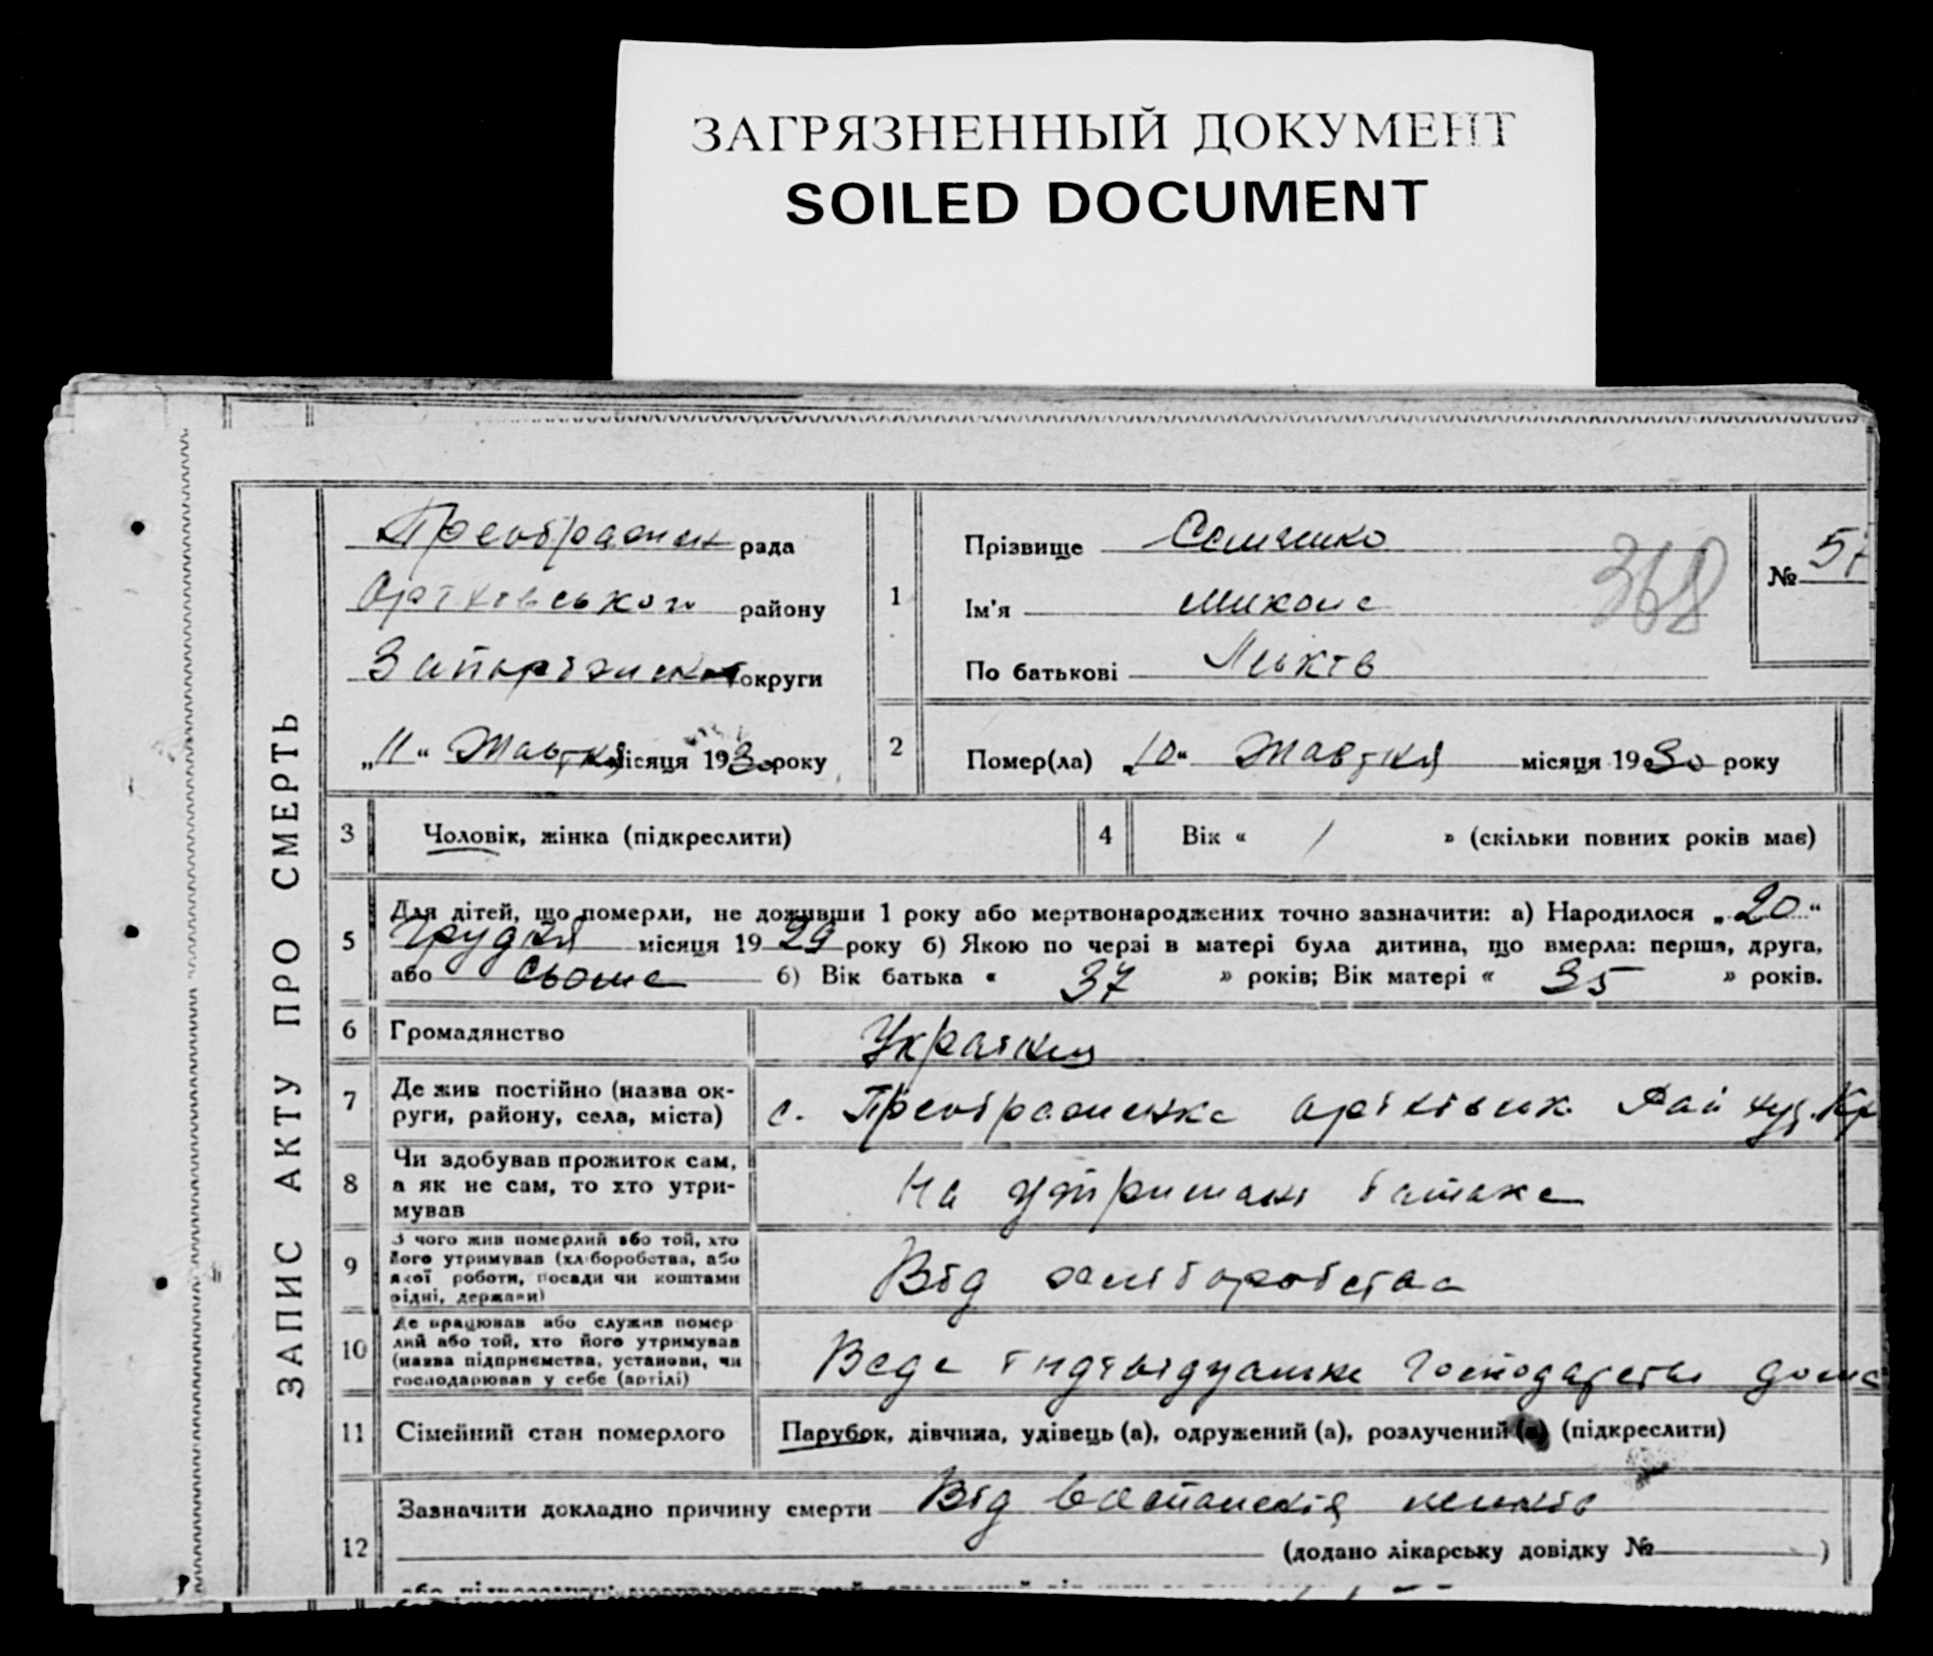 ЗАГРЯЗНЕННЫЙ ДОКУМЕНТ
SOILED DOCUMENT
ЗАПИС АКТУ ПРО СМЕРТЬ
Преображен рада
Оріхівського району
Запоріжськ округи
„11“ Жовтня місяця 1930 року
1
Прізвище Семешко
Ім'я Микола
По батькові
368
№ 57
2
Помер(ла) „10“ Жовтня місяця 1930 року
3 Чоловік, жінка (підкреслити)
4 Вік « / » (скільки повних років має)
5 Для дітей, що померли, не доживши 1 року або мертвонароджених точно зазначити: а) Народилося „20“
Грудня місяця 1929 року б) Якою по черзі в матері була дитина, що вмерла: перша, друга,
або Сьома б) Вік батька « 37 » років; Вік матері « 35 » років.
6 Громадянство Україньц
7 Де жив постійно (назва ок-
руги, району, села, міста) с. Преображенка Оріхівськ Рай
8 Чи здобував прожиток сам,
а як не сам, то хто утри-
мував На утримані батька
9 З чого жив померлий або той, хто
його утримував (хліборобства, або
якої роботи, посади чи коштами
рідні, держави) Від хліборобства
10 Де працював або служив помер
лий або той, хто його утримував
(назва підприємства, установи, чи
господарював у себе (артілі) Веде індивідуальне господарство дома
11 Сімейний стан померлого Парубок, дівчина, удівець (а), одружений (а), розлучений (а) (підкреслити)
12 Зазначити докладно причину смерти Від воспаленія
(додано лікарську довідку № )